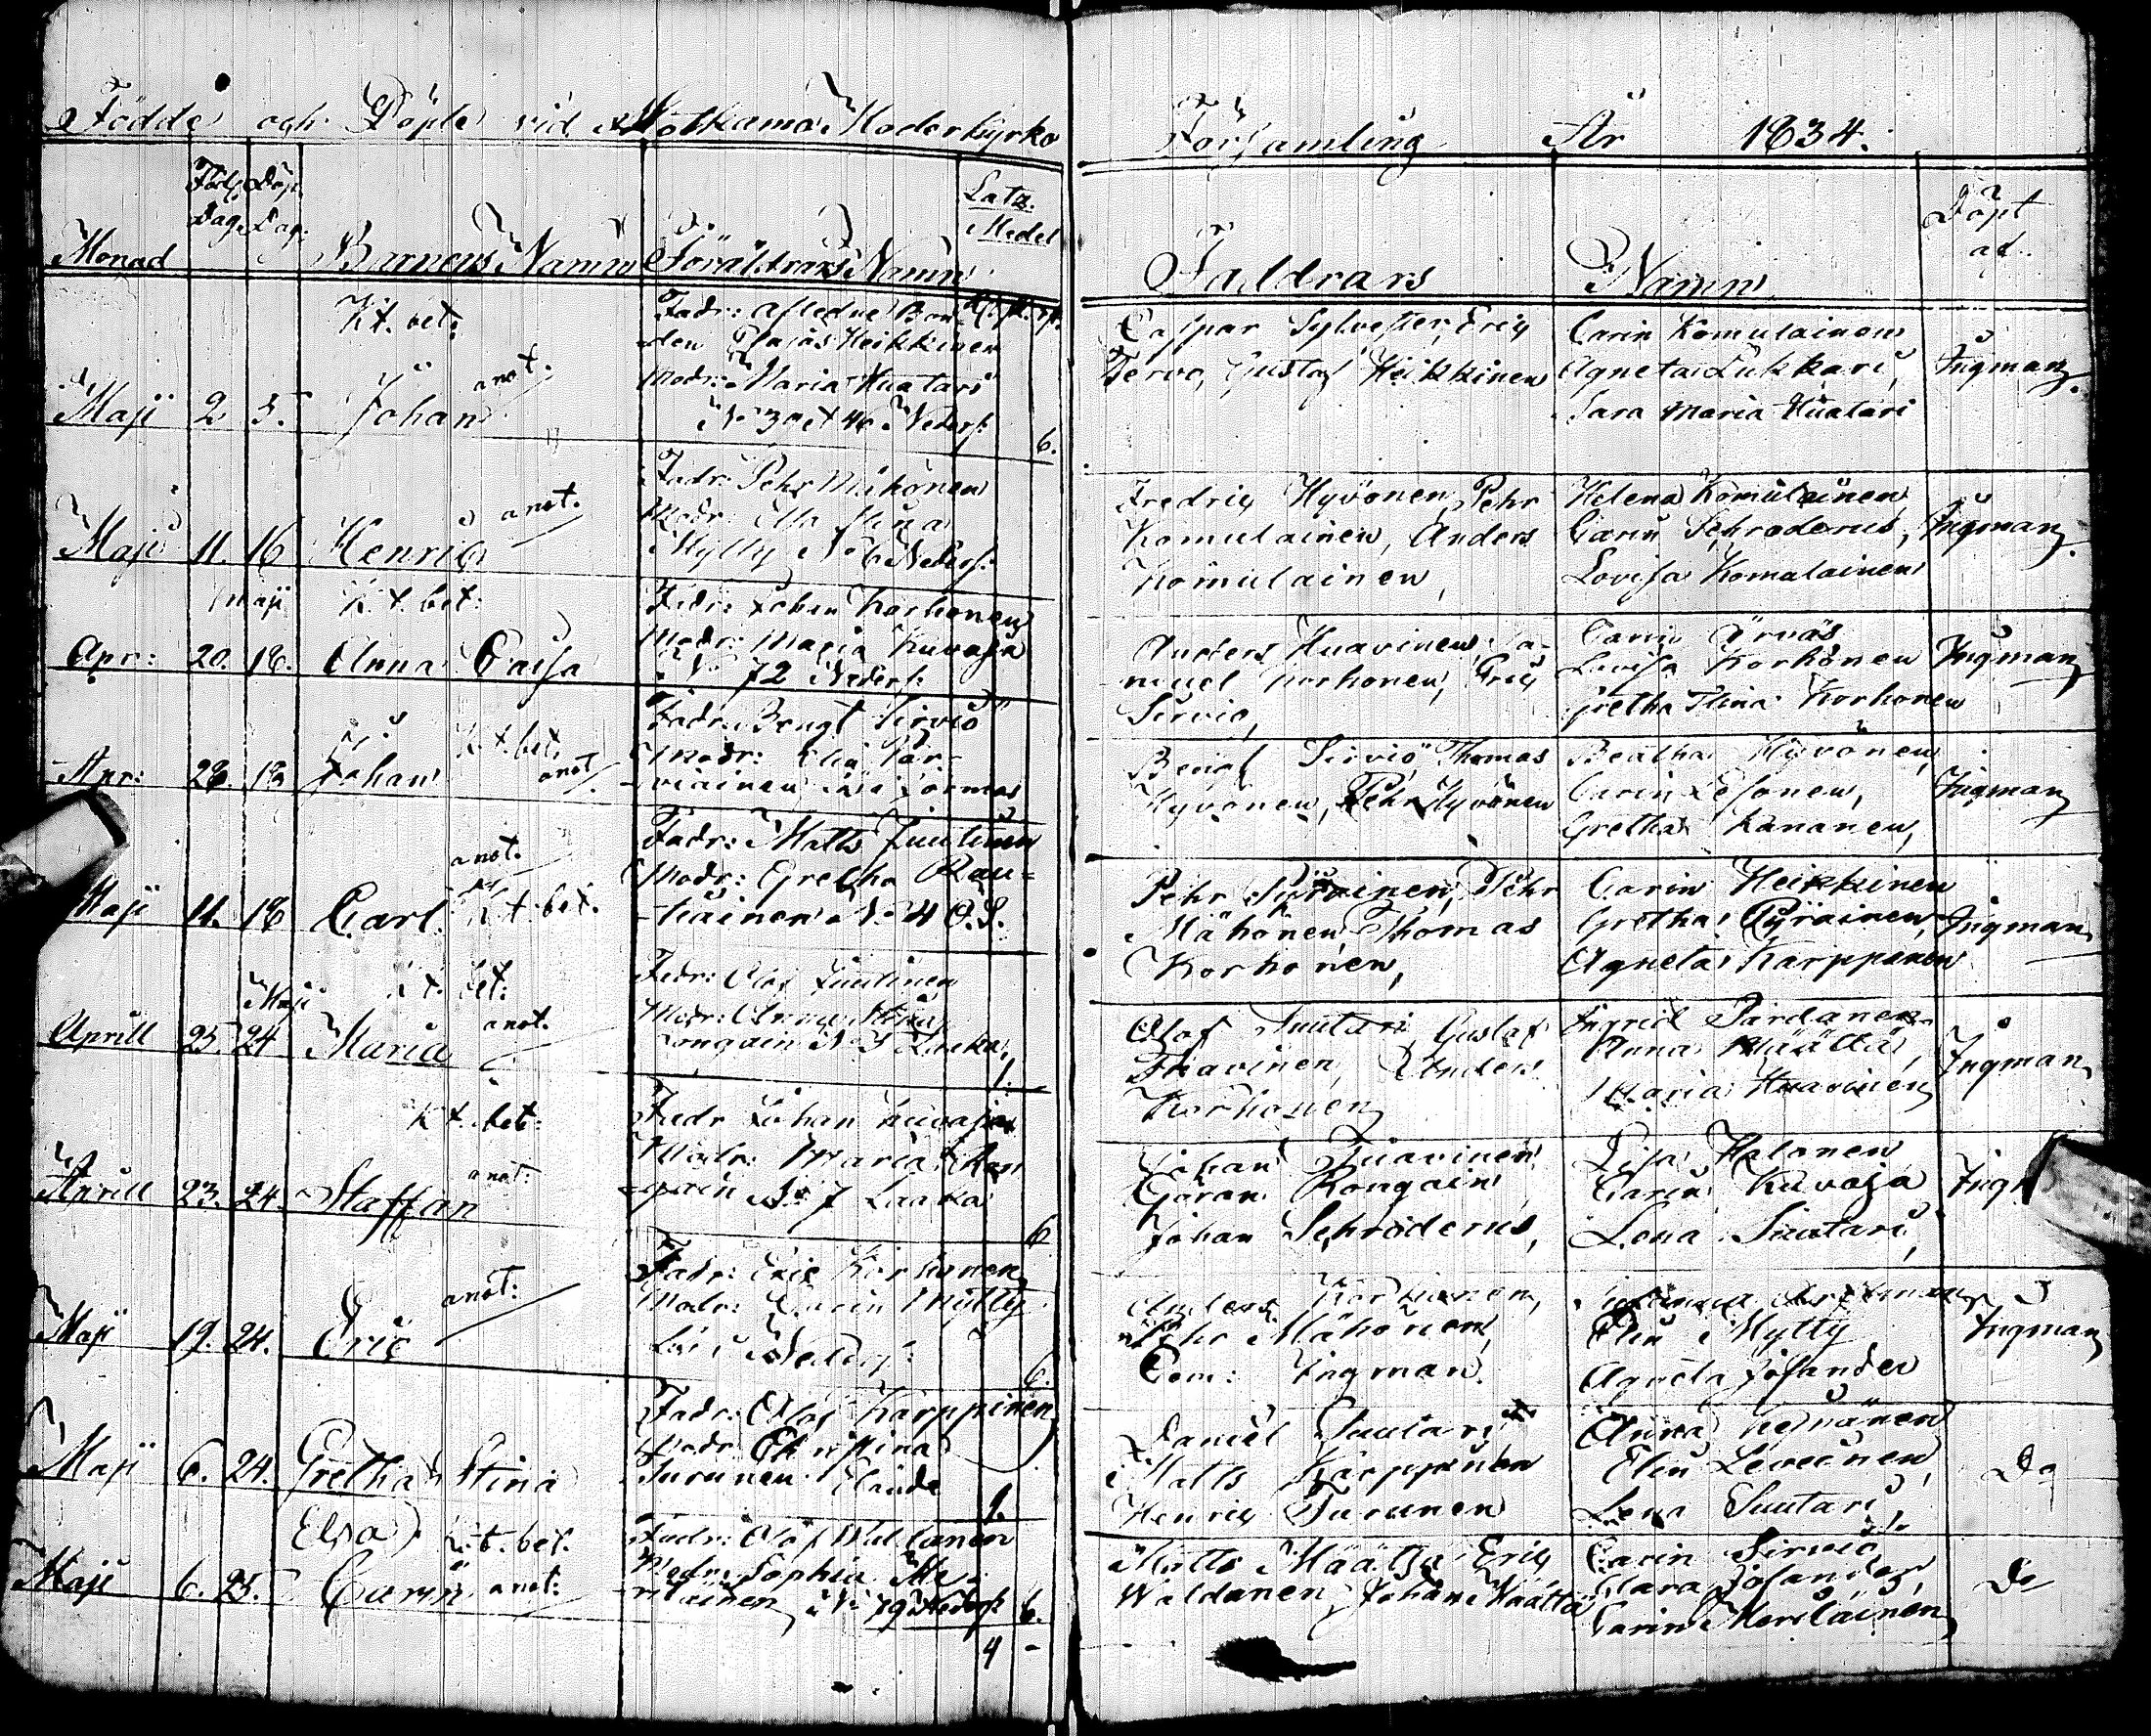 Födde och Döpte vid Sotkamo Moderkyrko
Församling År 1834.
Monad
Född Dag.
Döp. Dag.
Barnens Namn
Föräldrars Namn
Lata Medel
Faddrars
Namn
Döpt af.
Kt. bet:
Maji 2 5. Johan anot.
Fadr: Afledne Bon-
den Heikkinen
Modr: Maria Huatari
No 3 et 46 Neders: 6.
Caspar Sylvester, Eric
Tervo, Gustaf Heikkinen
Carin Komulainen
Agneta Lukkari,
Sara Maria Huatari
Ingman
Maji 11. 16 Henric anot.
Fadr: Pehr Mähönen
Modr: Stina
Mylly No 6 Neders:
Fredric Hyvönen, Pehr
Komulainen, Anders
Komulainen,
Helena Komulainen
Carin Schroderus,
Lovisa Komulainen
Ingman
Maji Kt. bet:
Apr: 20. 18. Anna Caisa
Fadr: Johan Korhonen
Modr: Maria Kuvaja
No 72 Neders:
Anders Huavinen, Sa-
muel Korhonen, Eric
Sirviö,
Carin
Lovisa Korhonen
Gretha Stina Korhonen
Ingman
Kt. bet.
Apr: 28. 18 Johan anot
Fadr: Bengt Sirviö
Modr: Elin Kar-
viainen
Bengt Sirviö, Thomas
Hyvönen, Pehr Hyvönen
Beatha Hyvönen,
Carin Lesonen,
Gretha Kananen,
Ingman
anot.
Maji 11. 18 Carl Kt. bet.
Fadr: Matts Juutinen
Modr: Gretha Rau-
tiainen No 4 Ö.S.
Pehr Pyräinen, Pehr
Mähönen, Thomas
Korhonen,
Carin Heikkinen
Gretha Pyräinen,
Agneta Karppinen
Ingman
Maji Kt. bet:
Aprill 25. 24 Maria anot.
Fadr: Olof Juutinen
Modr: Anna Stina
Rongain No 3 Laaka, 1.
Olof Suutari, Gustaf
Huavinen, Anders
Korhonen
Ingrid Pardanen
Anna Määttä,
Maria Huavinen
Ingman
Kt. bet:
Aprill 23. 24. Staffan anot:
Fadr Johan Kuvaja
Modr: Maria Ron
gain No 7 Laaka 6
Johan Huavinen
Göran Rongain
Johan Schroderus,
Lisa Halonen
Carin Kuvaja
Lena Suutari,
Maji 19. 24. Eric anot:
Fadr: Eric Korhonen
Modr: Carin Mylly
Lösi Neders: 6.
Anders Korhonen,
Pehr Mähönen
Com: Ingman.
Elin Mylly
Agneta Josander
Ingman
Maji 6. 24. Gretha Stina
Fadr: Olof Karppinen
Modr: Christina
Turunen 1.
Daniel Suutari
Matts Karppinen
Henric Turunen
Anna
Elin Leveinen
Lena Suutari,
Do
Elsa Kt. bet.
Maji 6. 25. Carin anot:
Fadr: Olof Waldanen
Modr: Sophia Me-
riläinen No 79 Neders: 6.
4 -
Matts Määttä Eric
Waldanen, Johan Määttä
Carin Sirviö,
Clara Josander,
Carin Meriläinen,
Do